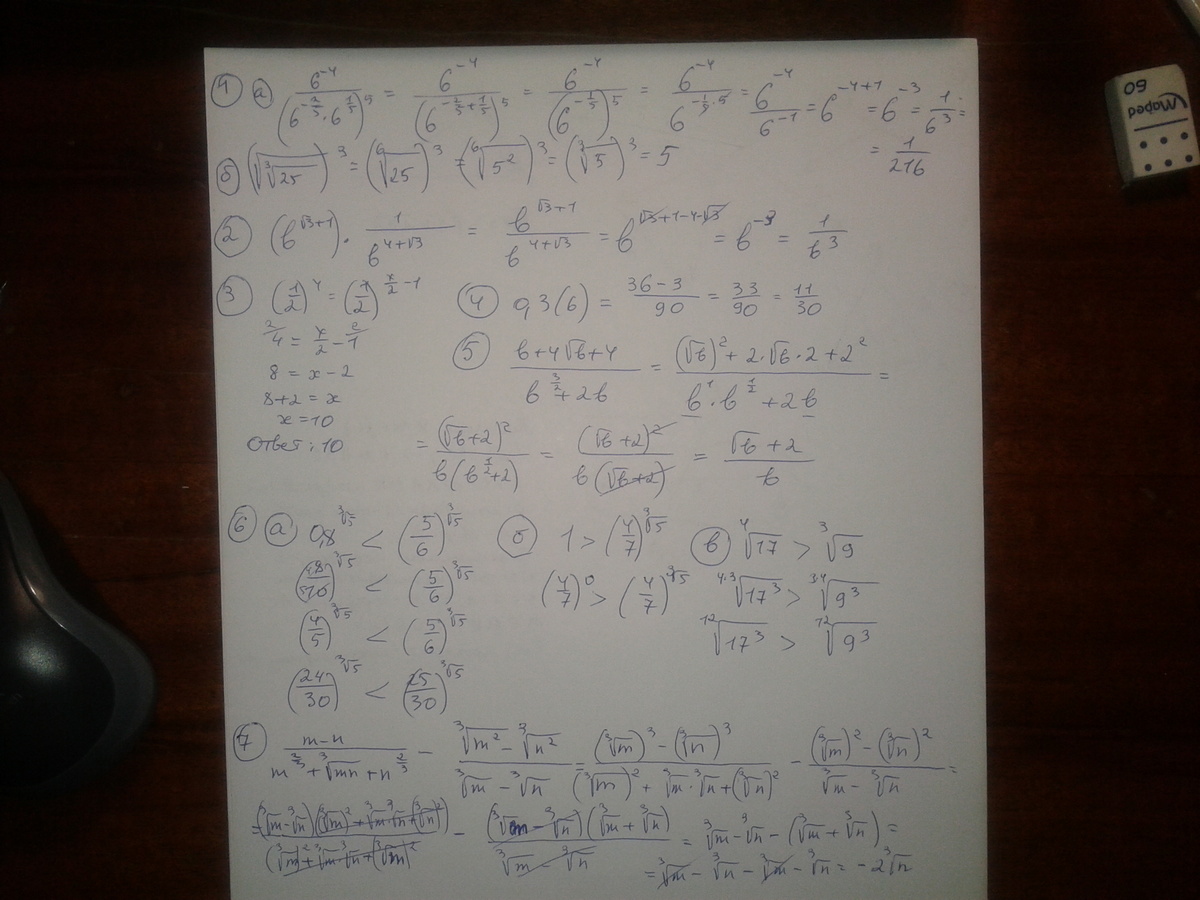 1 а) 6^-4 / (6^(-2/5) · 6^(1/5))^5 = 6^-4 / (6^(-2/5 + 1/5))^5 = 6^-4 / (6^(-1/5))^5 = 6^-4 / 6^(-1/5 · 5) = 6^-4 / 6^-1 = 6^(-4+1) = 6^-3 = 1/6^3 =
= 1/216
б) (√∛25)^3 = (⁶√25)^3 = (⁶√5²)^3 = (∛5)^3 = 5
2 (b^(√3+1)) · 1/b^(4+√3) = b^(√3+1) / b^(4+√3) = b^(√3+1-4-√3) = b^-3 = 1/b^3
3 (1/2)^4 = (1/2)^(x/2 - 1)
4 = x/2 - 1
8 = x - 2
8+2 = x
x = 10
Ответ: 10
4 0,3(6) = (36-3)/90 = 33/90 = 11/30
5 (b+4√b+4) / (b^(3/2) + 2b) = ((√b)² + 2·√b·2 + 2²) / (b^1 · b^(1/2) + 2b) =
= (√b+2)² / (b(b^(1/2)+2)) = (√b+2)² / (b(√b+2)) = (√b+2) / b
6 а) 0,8^∛5 < (5/6)^∛5
(8/10)^∛5 < (5/6)^∛5
(4/5)^∛5 < (5/6)^∛5
(24/30)^∛5 < (25/30)^∛5
б) 1 > (4/7)^∛5
(4/7)^0 > (4/7)^∛5
в) ⁴√17 > ³√9
⁴·³√17³ > ³·⁴√9³
¹²√17³ > ¹²√9³
7 (m-n) / (m^(2/3) + ∛mn + n^(2/3)) - (∛m² - ∛n²) / (∛m - ∛n) = ((∛m)³ - (∛n)³) / ((∛m)² + ∛m·∛n + (∛n)²) - ((∛m)² - (∛n)²) / (∛m - ∛n) =
= (∛m-∛n)((∛m)² + ∛m·∛n + (∛n)²) / ((∛m)² + ∛m·∛n + (∛m)²) - (∛m - ∛n)(∛m + ∛n) / (∛m - ∛n) = ∛m - ∛n - (∛m + ∛n) =
= ∛m - ∛n - ∛m - ∛n = -2∛n
Maped
60